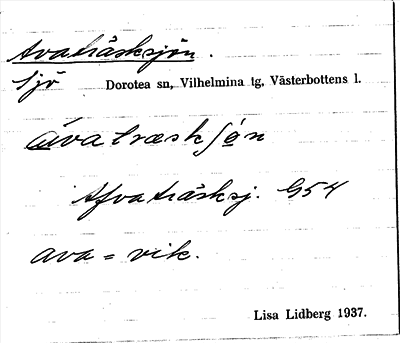 Avaträsksjön.
Sjö
Dorotea sn, Vilhelmina tg, Västerbottens l.
avatræskʃøn
Afvaträsksj. G54
ava = vik.
Lisa Lidberg 1937.